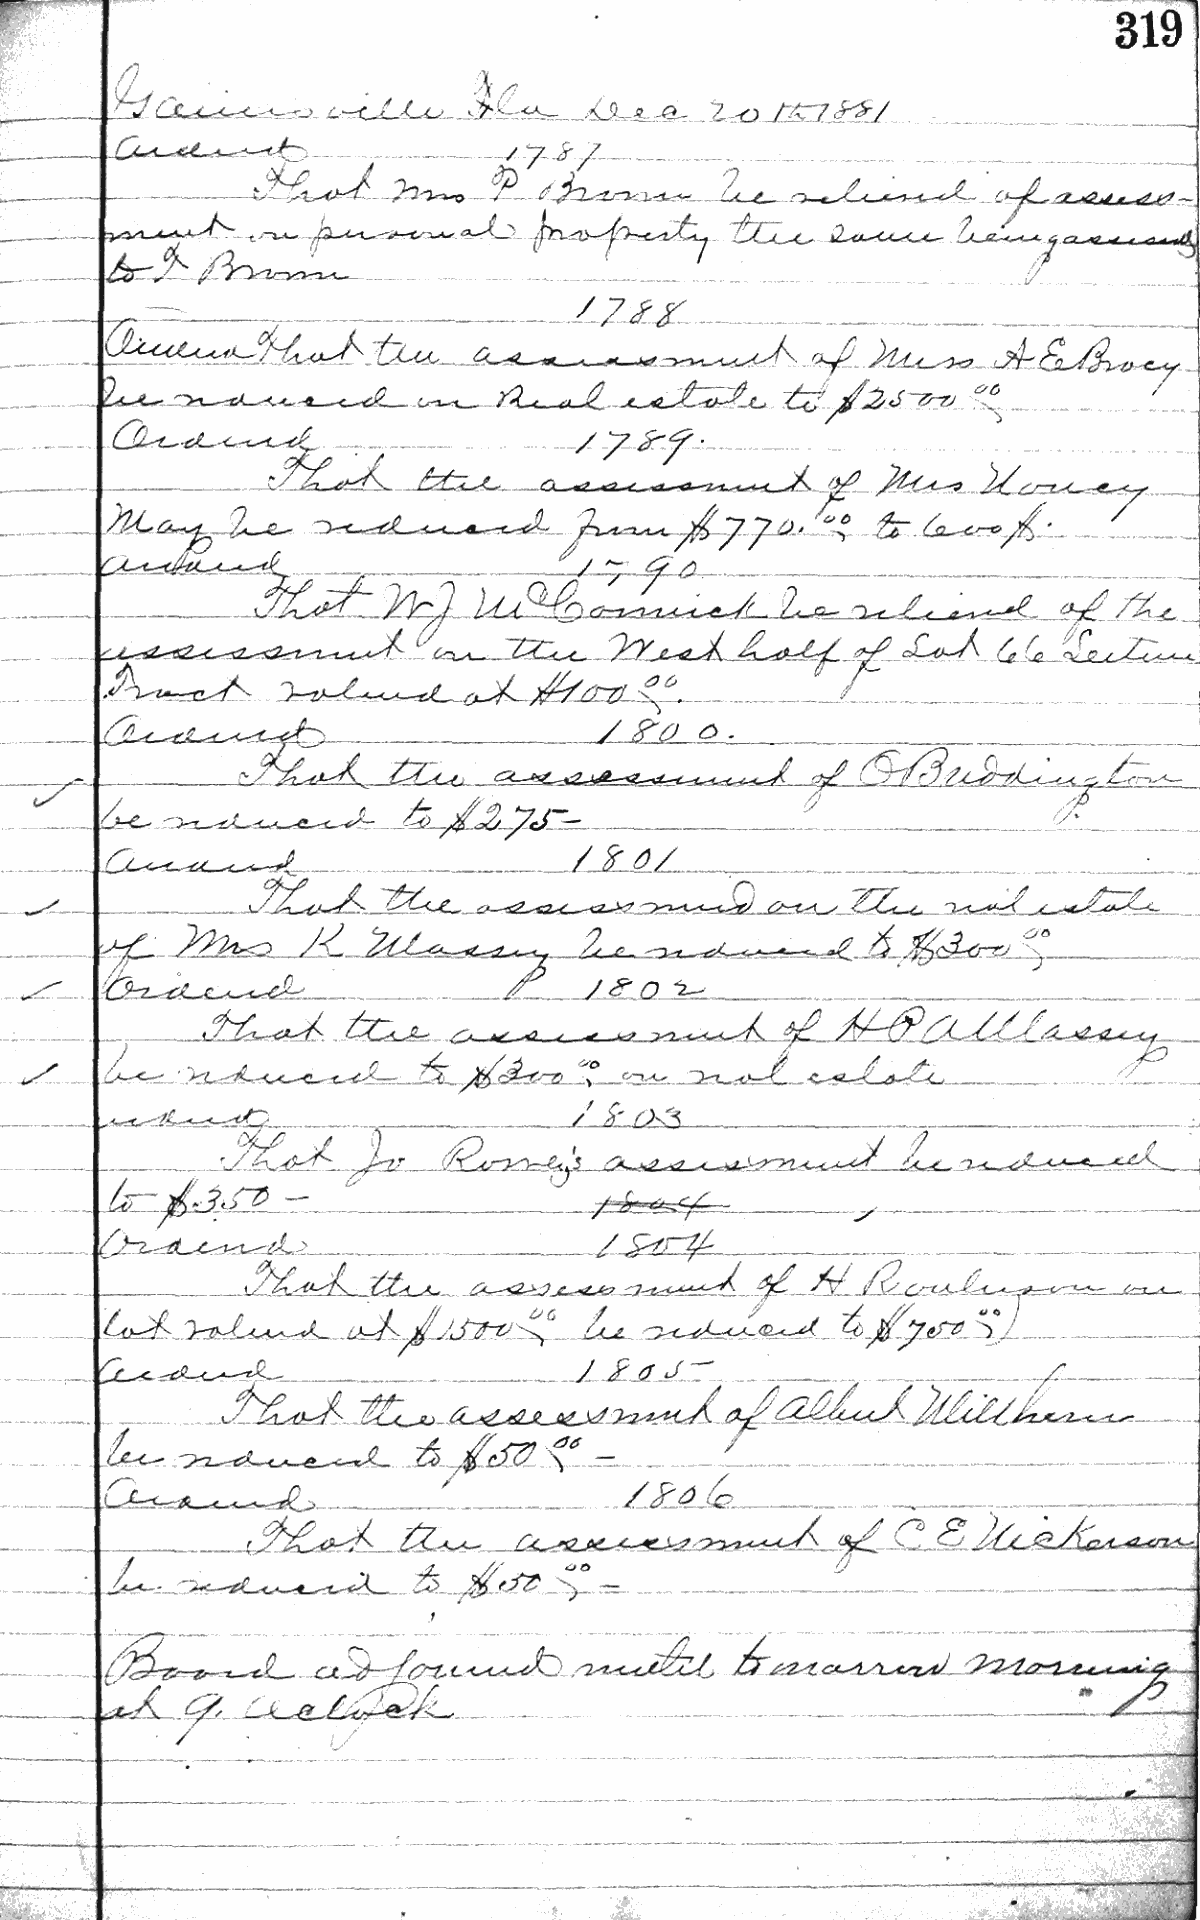 319
Gainesville Fla Dec 20th 1881
Ordered 1787
That Mrs P Brown be relieved of assess-
ment on personal property the same being assessed
to T Brown
1788
Ordered That the assessment of Mrs A E Bracy
be reduced on Real estate to $2500.00
Ordered 1789.
That the assessment of Mrs Nancy
May be reduced from $770.00 to 600$.
Ordered 1790
That W J McCormick be relieved of the
assessment on the West half of Lot 66
Tract valued at $100.00.
Ordered 1800.
That the assessment of O Buddington
be reduced to $275-
Ordered 1801
That the assessment on the real estate
of Mrs K Massey be reduced to $300.00
Ordered 1802
That the assessment of H P A Massey
be reduced to $300.00 on real estate
Ordered 1803
That Jo assessment be reduced
to $350- 1804
Ordered 1804
That the assessment of H on
lot valued at $1500.00 be reduced to $750.00)
Ordered 1805
That the assessment of Albert
be reduced to $50.00-
Ordered 1806
That the assessment of C E Nickerson
be reduced to $50.00-
Board adjourned until tomorrow morning
at 9. Oclock